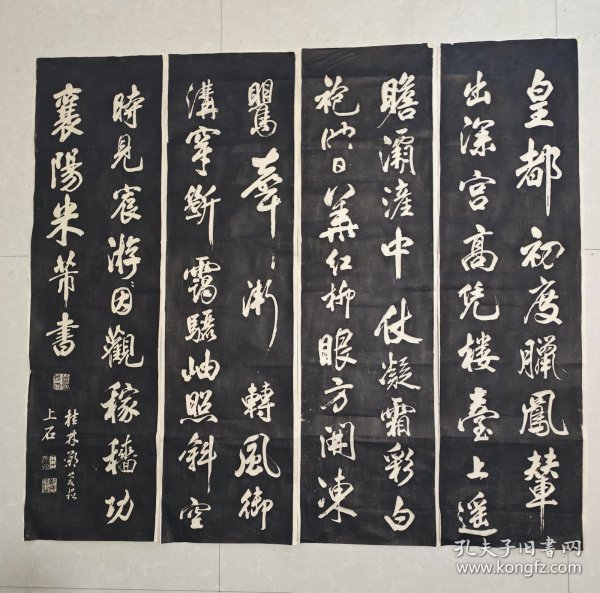 皇都初度臘鳳輦
出深宮高凭樓臺上遥
瞻灞滻中仗凝霜彩白
袍映日華紅柳眼方開凍
鸎聲漸轉風御
溝穿斷靄驪岫照斜空
時見宸游因觀稼穡功
襄陽米芾書
桂林鄭
上石
孔夫子旧书网
www.kongfz.com